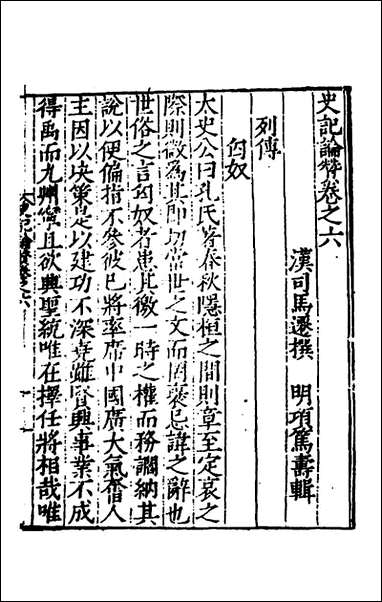 史記論贊卷之六
漢司馬遷撰 明項篤壽輯
列傳
匈奴
太史公曰孔氏著春秋隱桓之間則章至定哀之
際則微為其切當世之文而罔褒忌諱之辭也
世俗之言匈奴者患其徼一時之權而務讇納其
說以便偏指不參彼己將率席中國廣大氣奮人
主因以決策是以建功不深堯雖賢興事業不成
得禹而九州寧且欲興聖統唯在擇任將相哉唯
史記論贊卷之六